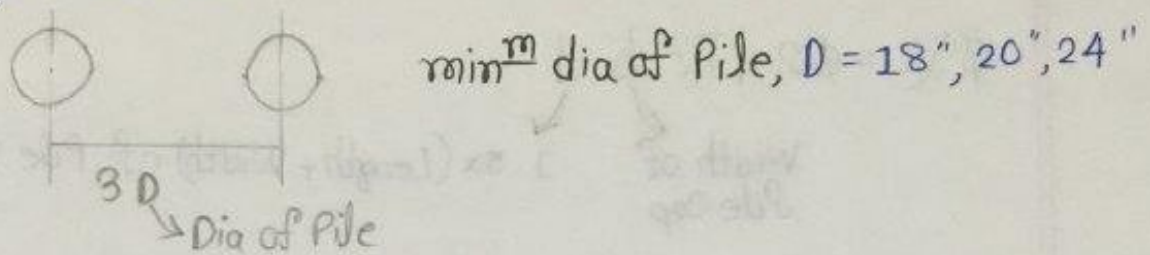 minm dia of Pile, D = 18", 20", 24"
3D
Dia of Pile